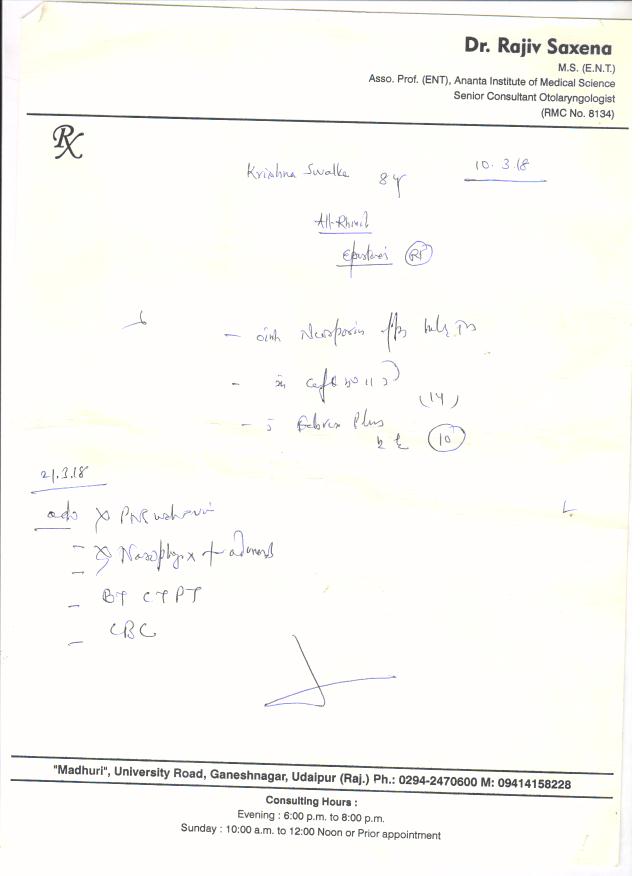 Dr. Rajiv Saxena
M.S. (E.N.T.)
Asso. Prof. (ENT), Ananta Institute of Medical Science
Senior Consultant Otolaryngologist
(RMC No. 8134)
Rx
Krishna 8 y 10.3.18
All-Rhinit
Epistaxis
- oint Neosporin
-
(14)
- Febrex Plus
10
21.3.18
adv X PNS
- X Nasophyx adenoid
- BT CT PT
- CBC
"Madhuri", University Road, Ganeshnagar, Udaipur (Raj.) Ph.: 0294-2470600 M: 09414158228
Consulting Hours :
Evening : 6:00 p.m. to 8:00 p.m.
Sunday : 10:00 a.m. to 12:00 Noon or Prior appointment